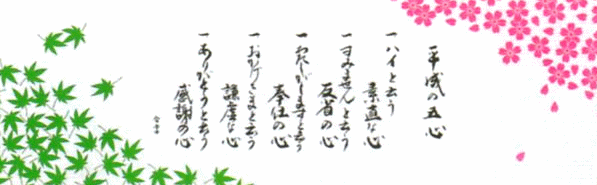 平成の五心
一ハイと云う
素直な心
一すみませんと云う
反省の心
一わたしがしますと云う
奉仕の心
一おかげさまと云う
謙虚な心
一ありがとうと云う
感謝の心